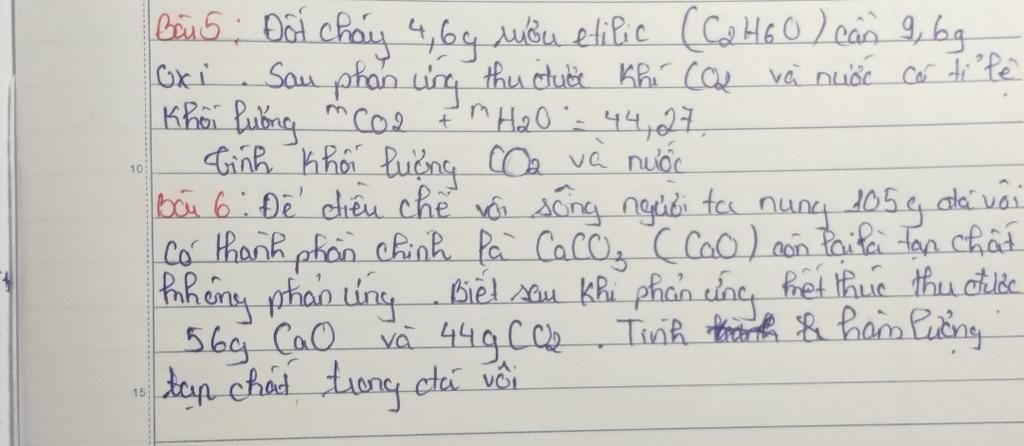 Bài 5: Đốt cháy 4,6g rượu etilic (C2H6O) cần 9,6g
oxi. Sau phản ứng thu được khí CO2 và nước có tỉ lệ
khối lượng mCO2 + mH2O = 44,27.
10 tính khối lượng CO2 và nước
Bài 6: Để điều chế vôi sống người ta nung 105g đá vôi
có thành phần chính là CaCO3 (CaO) còn lại là tạp chất
không phản ứng. Biết sau khi phản ứng kết thúc thu được
56g CaO và 44g CO2. Tính & hàm lượng
15 tạp chất trong đá vôi